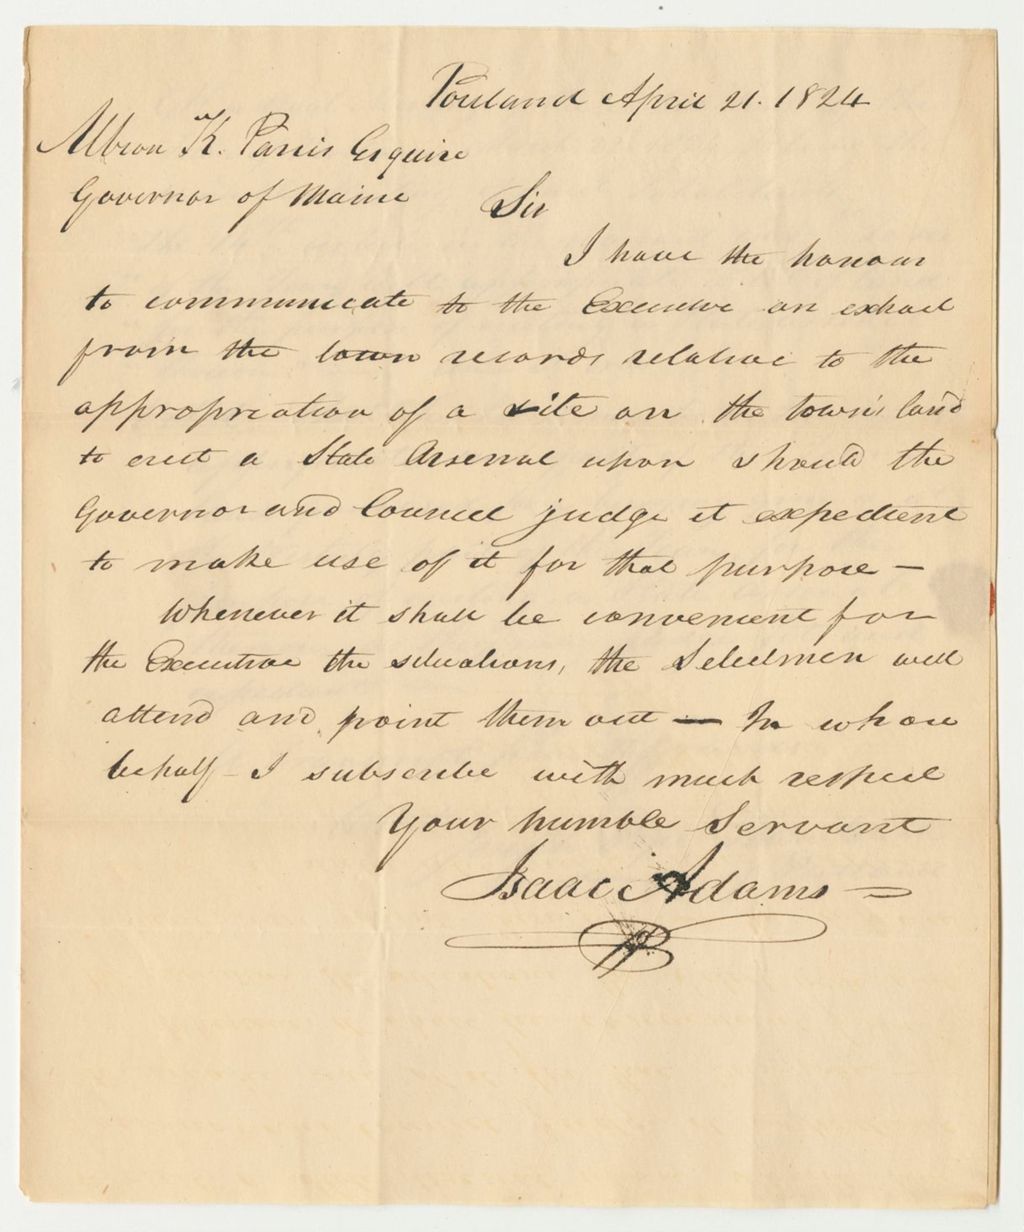 Portland April 21. 1824
Albion K. Parris Esquire
Governor of Maine Sir
I have the honour
to communicate to the Executive an extract
from the town records relative to the
appropriation of a site on the town's land
to erect a State Arsenal upon should the
Governor and Council judge it expedient
to make use of it for that purpose —
Whenever it shall be convenient for
the Executive the situations, the Selectmen will
attend and point them out — In whose
behalf I subscribe with much respect
Your humble Servant
Isaac Adams